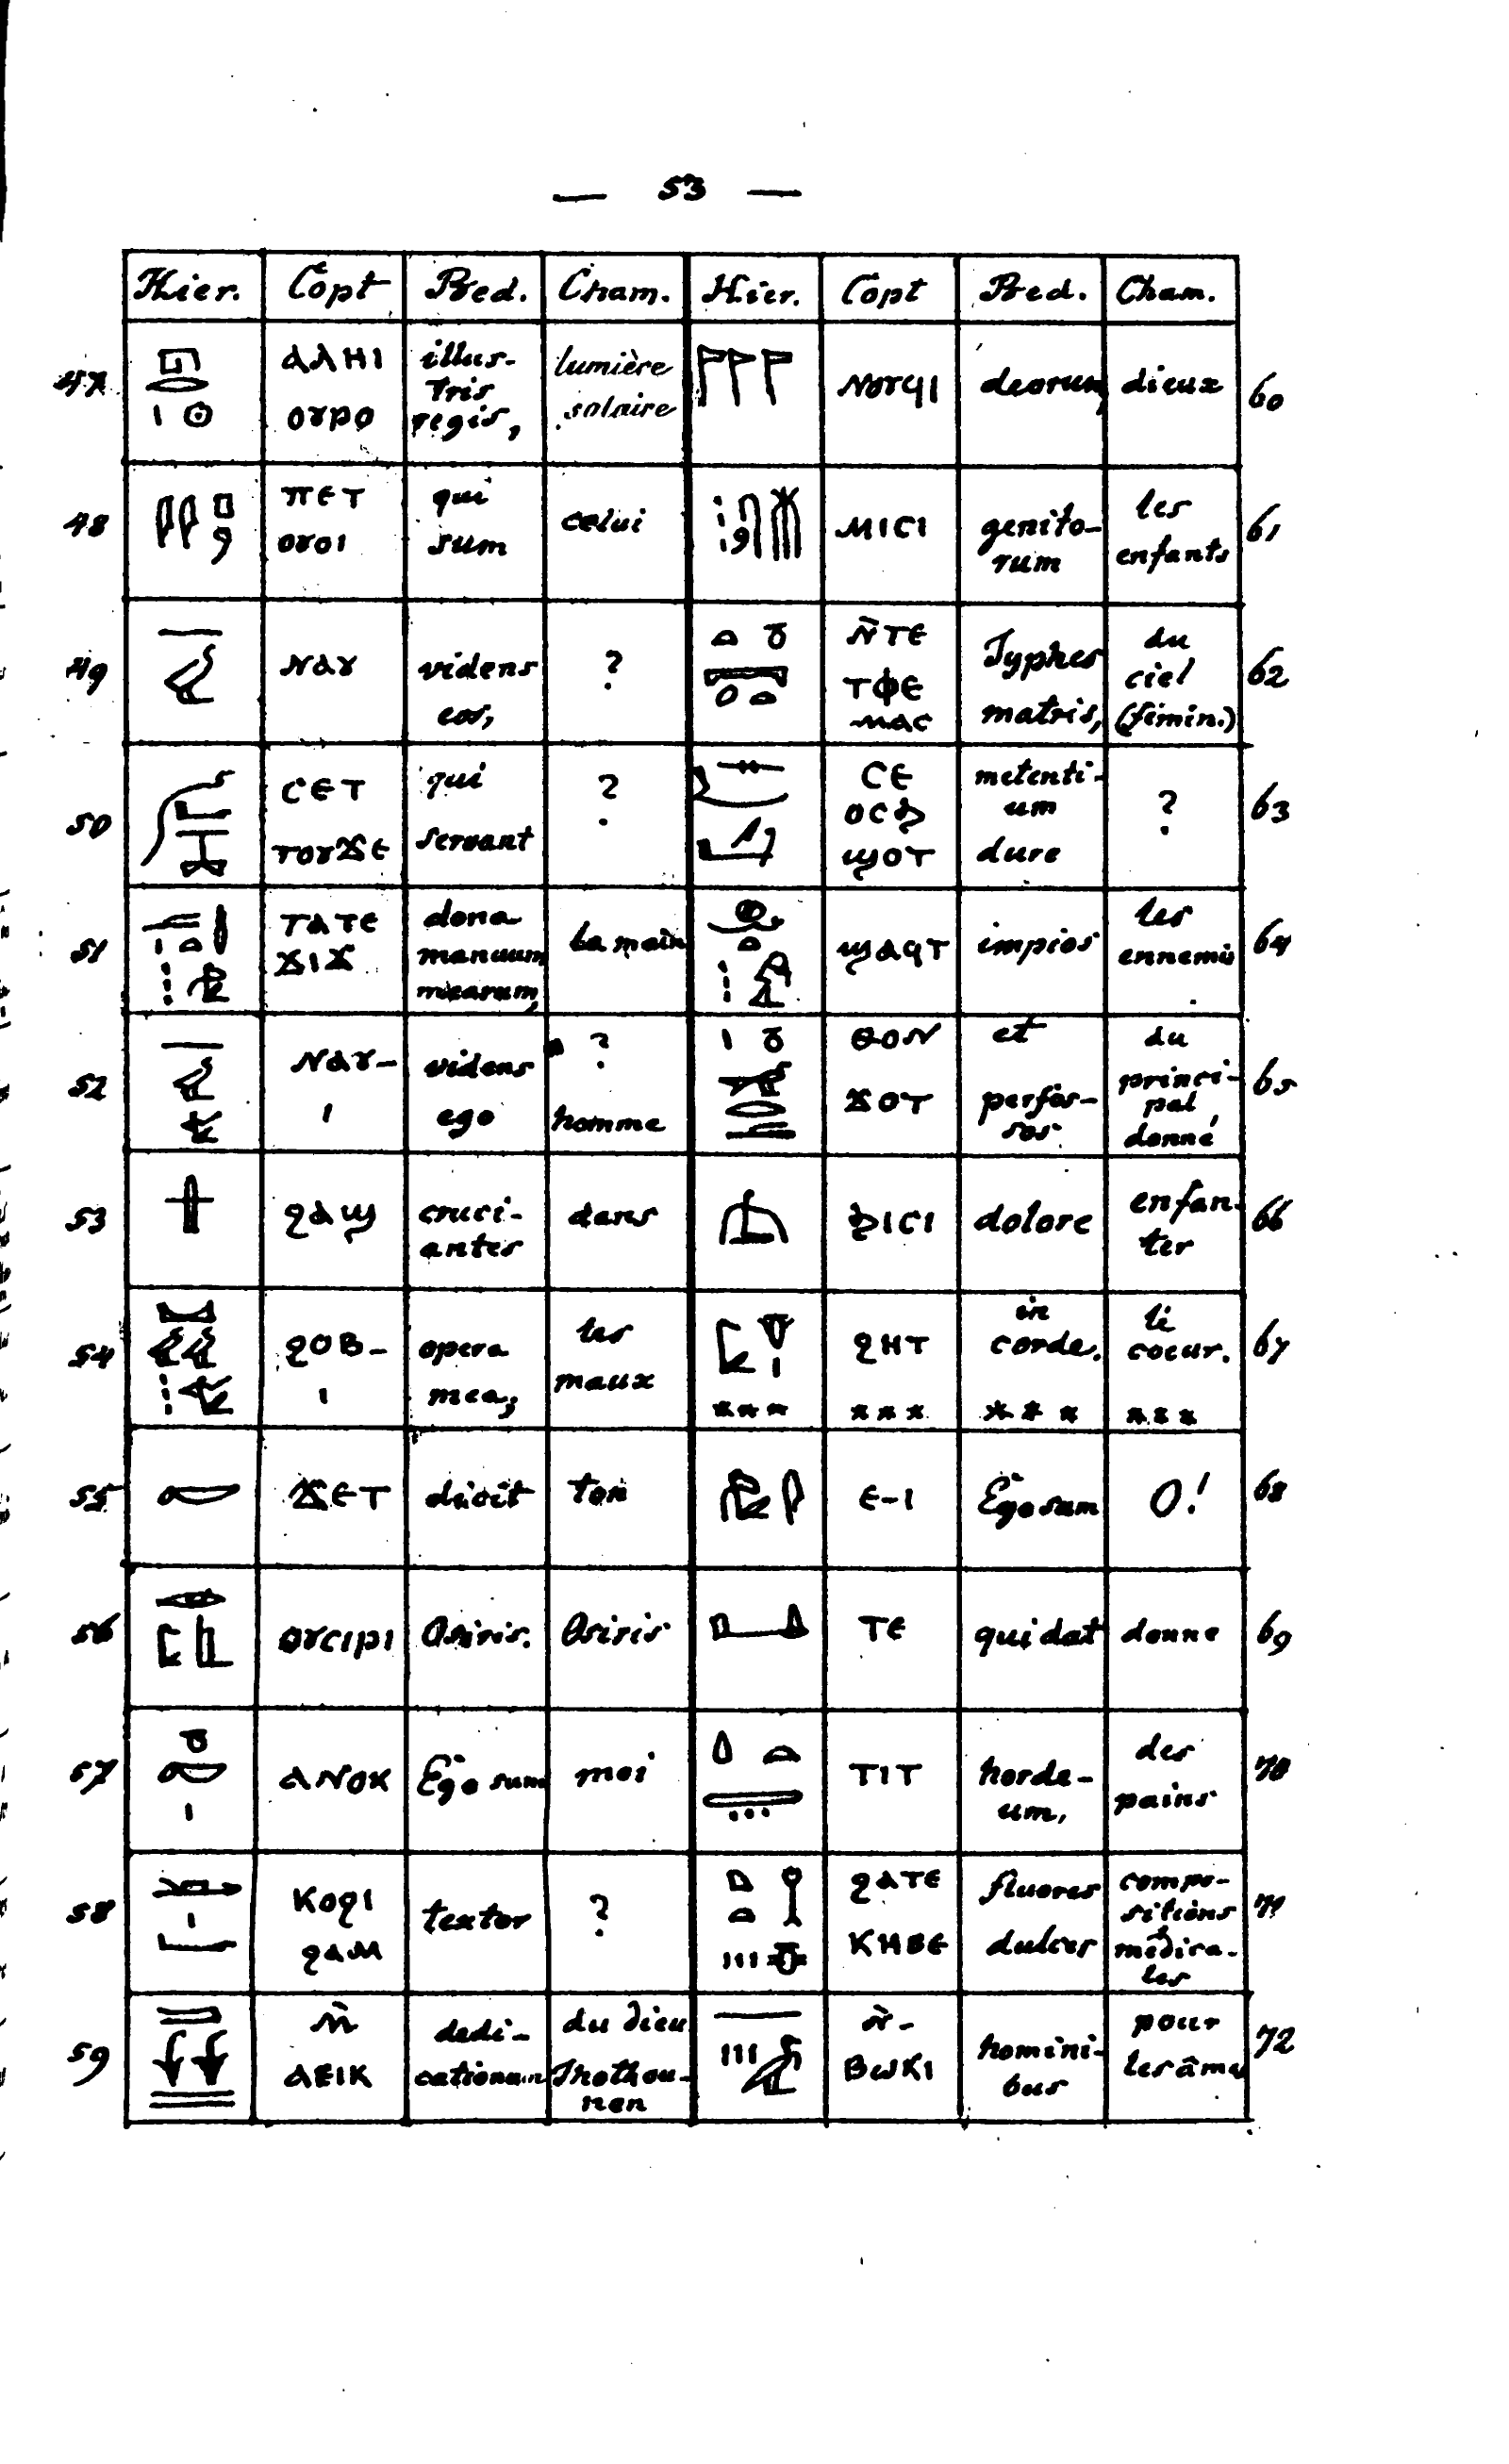 — 53 —
Hier. Copt Pred. Cham. Hier. Copt Pred. Cham.
47 ⲁⲗⲏⲓ ⲟⲩⲣⲟ illustris regis, lumière solaire ⲛⲟⲩϥⲓ deorum, dieux 60
48 ⲡⲉⲧ ⲟⲩⲟⲓ qui sum celui ⲙⲓⲥⲓ genito-rum les enfants 61
49 ⲛⲁⲩ videns eos, ? ⲛ̀ⲧⲉ ⲧⲫⲉ ⲙⲁⲥ Typhes matris, du ciel (fémin.) 62
50 ⲥⲉⲧ ⲧⲟⲩϫⲉ qui servant ? ⲥⲉ ⲟⲥϧ ϣⲟⲧ metenti-um dure ? 63
51 ⲧⲁⲧⲉ ϫⲓϫ dona manuum mearum, la main ϣⲁϥⲧ impios les ennemis 64
52 ⲛⲁⲩ-ⲓ videns ego ? homme ⲑⲟⲛ ϫⲟⲧ et perfos-sos du princi-pal, donné 65
53 ϩⲁϣ cruci-antes dans ϧⲓⲥⲓ dolore enfan-ter 66
54 ϩⲟⲃ-ⲓ opera mea; les maux ϩⲏⲧ in corde. le coeur. 67
*** *** *** ***
55 ϫⲉⲧ dicit ton ⲉ-ⲓ Ego sum O! 68
56 ⲟⲩⲥⲓⲣⲓ Osiris. Osiris ⲧⲉ qui dat donne 69
57 ⲁⲛⲟⲕ Ego sum moi ⲧⲓⲧ horde-um, des pains 70
58 ⲕⲟϩⲓ ϩⲁⲙ textor ? ϩⲁⲧⲉ ⲕⲏⲃⲉ fluores dulces compo-sitions médica-les 71
59 ⲙ̀ ⲁⲉⲓⲕ dedi-cationum du dieu Thothou-nen ⲛ̀-ⲃⲱⲕⲓ homini-bus pour les âmes 72